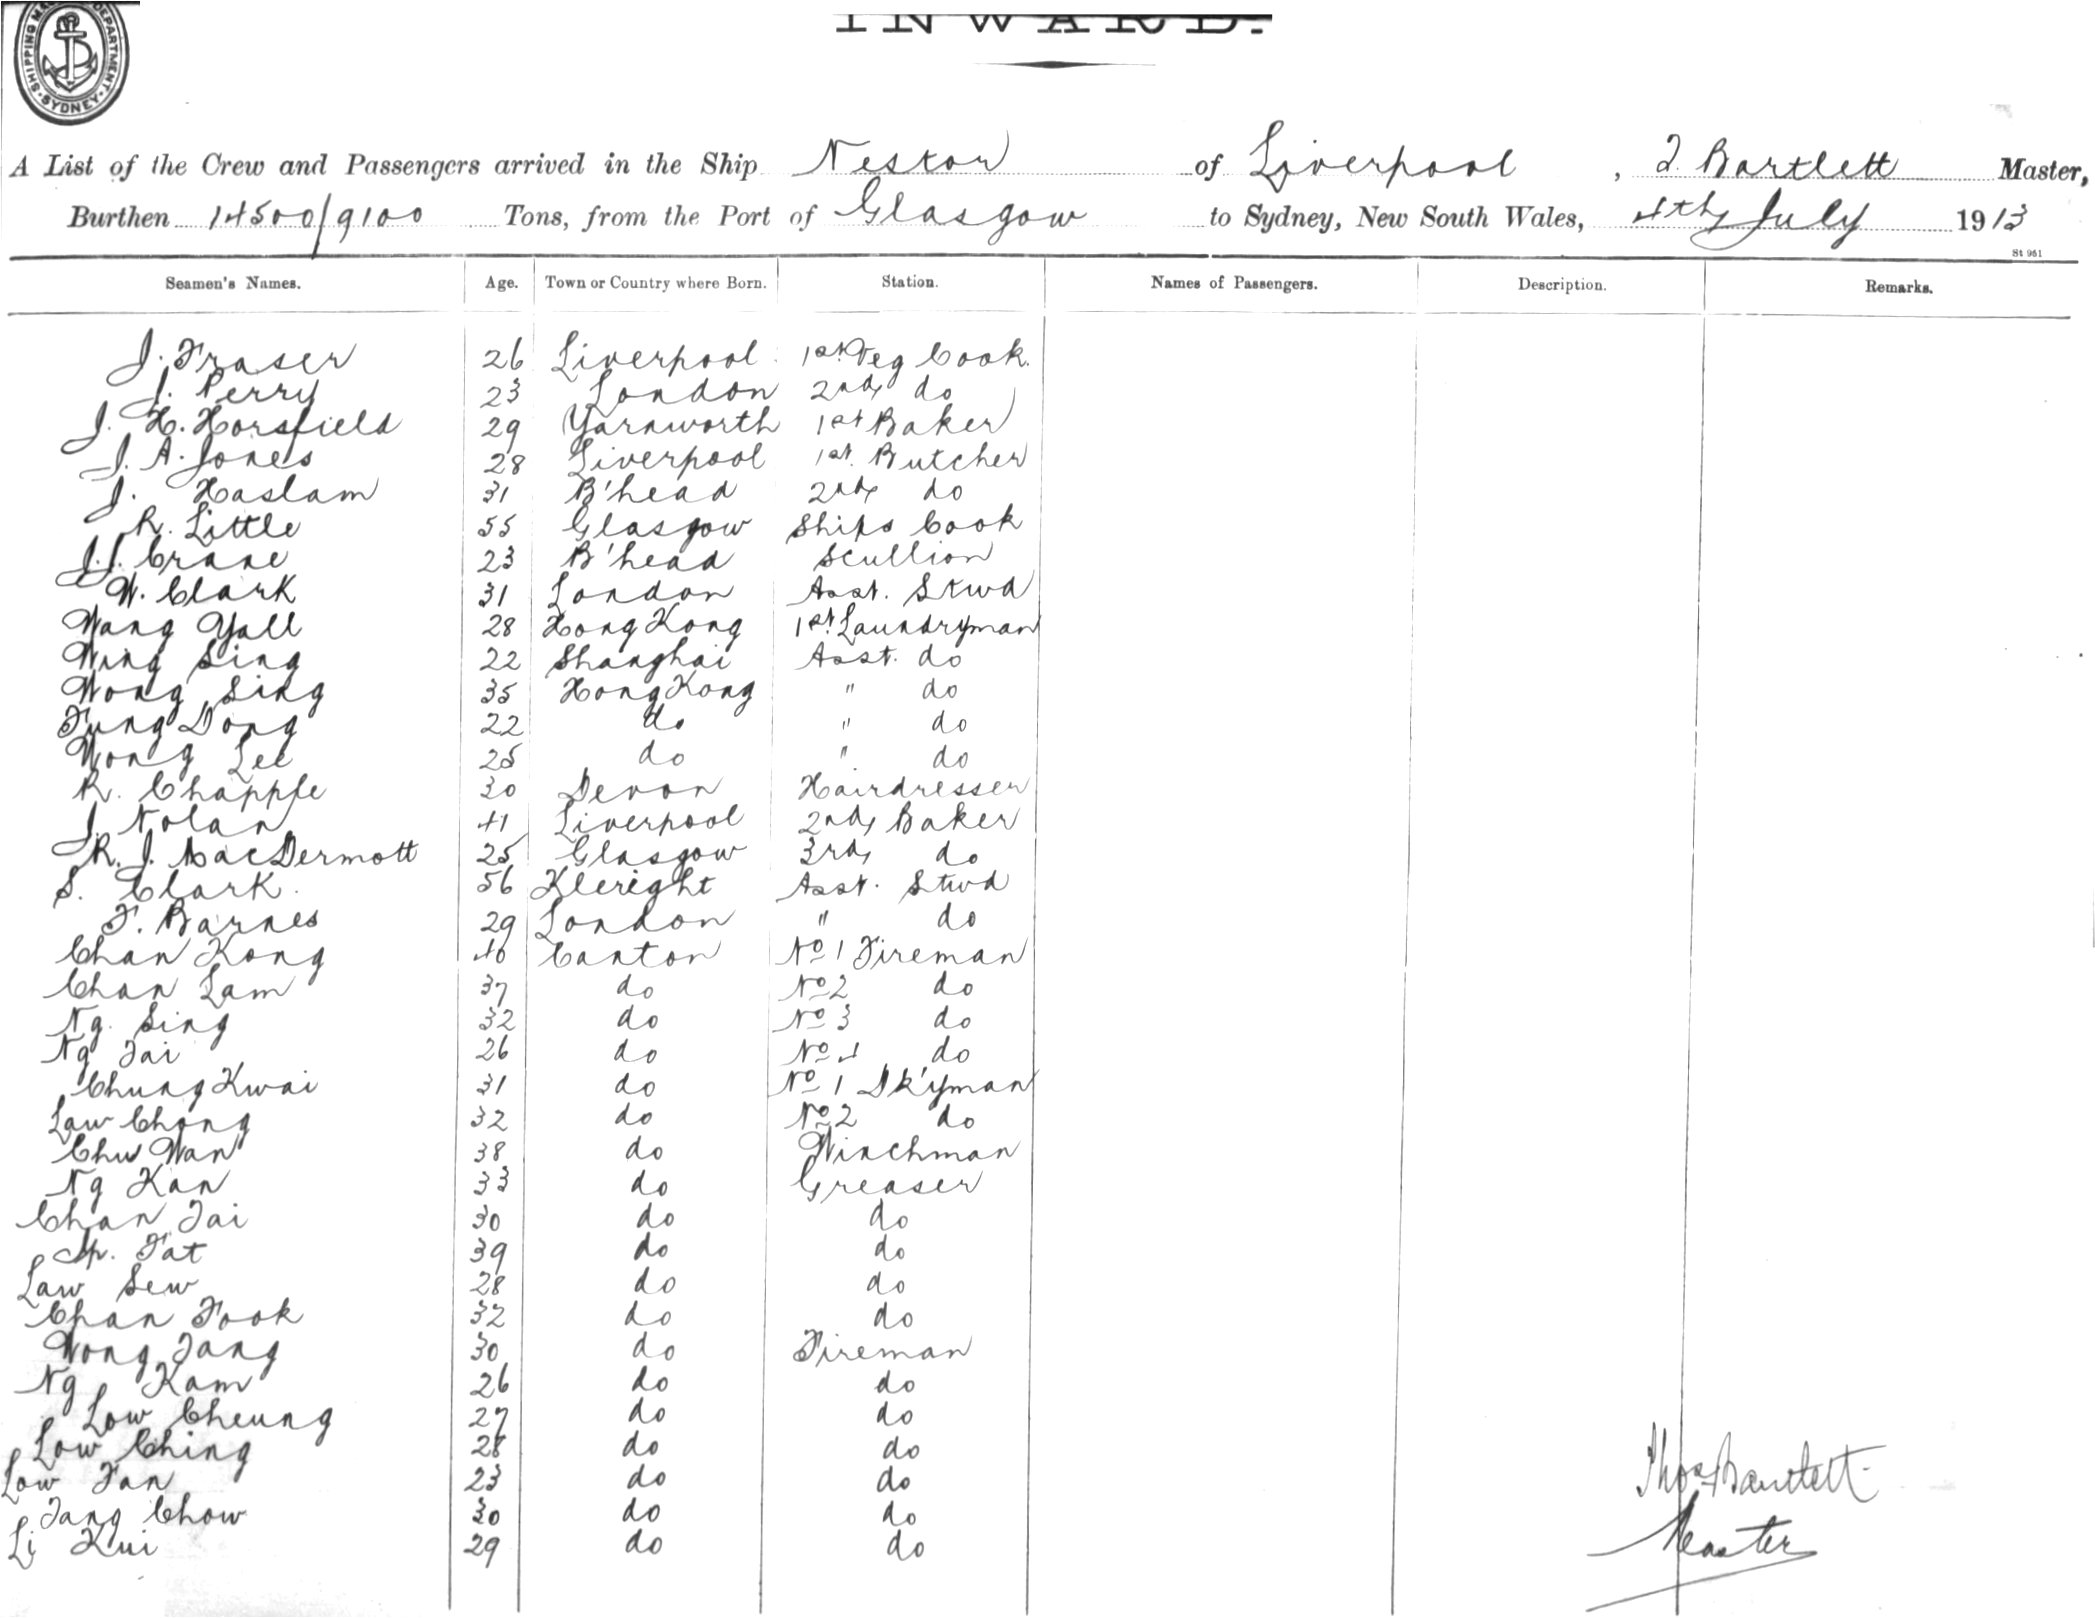 SHIPPING MA DEPARTMENT. SYDNEY.
INWARD.
A List of the Crew and Passengers arrived in the Ship Nestor of Liverpool, T. Bartlett Master,
Burthen 14500/9100 Tons, from the Port of Glasgow to Sydney, New South Wales, 4th July 1913
St 961
Seamen's Names. Age. Town or Country where Born. Station. Names of Passengers. Description. Remarks.
J. Fraser 26 Liverpool 1st Veg Cook.
J. Perry 23 London 2nd do
J. H. Horsfield 29 Yarnworth 1st Baker
J. A. Jones 28 Liverpool 1st. Butcher
J. Haslam 31 B'head 2nd do
R. Little 55 Glasgow Ships Cook
J. J. Crane 23 B'head Scullion
W. Clark 31 London Asst. Stwd
Wang Yall 28 Hong Kong 1st. Laundryman
Wing Sing 22 Shanghai Asst. do
Wong Sing 35 Hong Kong " do
Fung Dong 22 do " do
Wong Lee 25 do " do
R. Chapple 30 Devon Hairdresser
J. Nolan 41 Liverpool 2nd Baker
R. J. MacDermott 25 Glasgow 3rd do
S. Clark. 56 Kleright Asst. Stwd
F. Barnes 29 London " do
Chan Kong 40 Canton No 1 Fireman
Chan Lam 37 do No 2 do
Ng. Sing 32 do No 3 do
Ng Tai 26 do No 4 do
Chung Kwai 31 do No 1 Dk'yman
Law Chong 32 do No 2 do
Chu Wan 38 do Winchman
Ng Kan 33 do Greaser
Chan Tai 30 do do
Ip. Fat 39 do do
Law Sew 28 do do
Chan Fook 32 do do
Wong Tang 30 do Fireman
Ng Kam 26 do do
Low Cheung 27 do do
Low Ching 28 do do
Low Fan 23 do do
Tang Chow 30 do do
Li Kui 29 do do
Thos Bartlett
Master